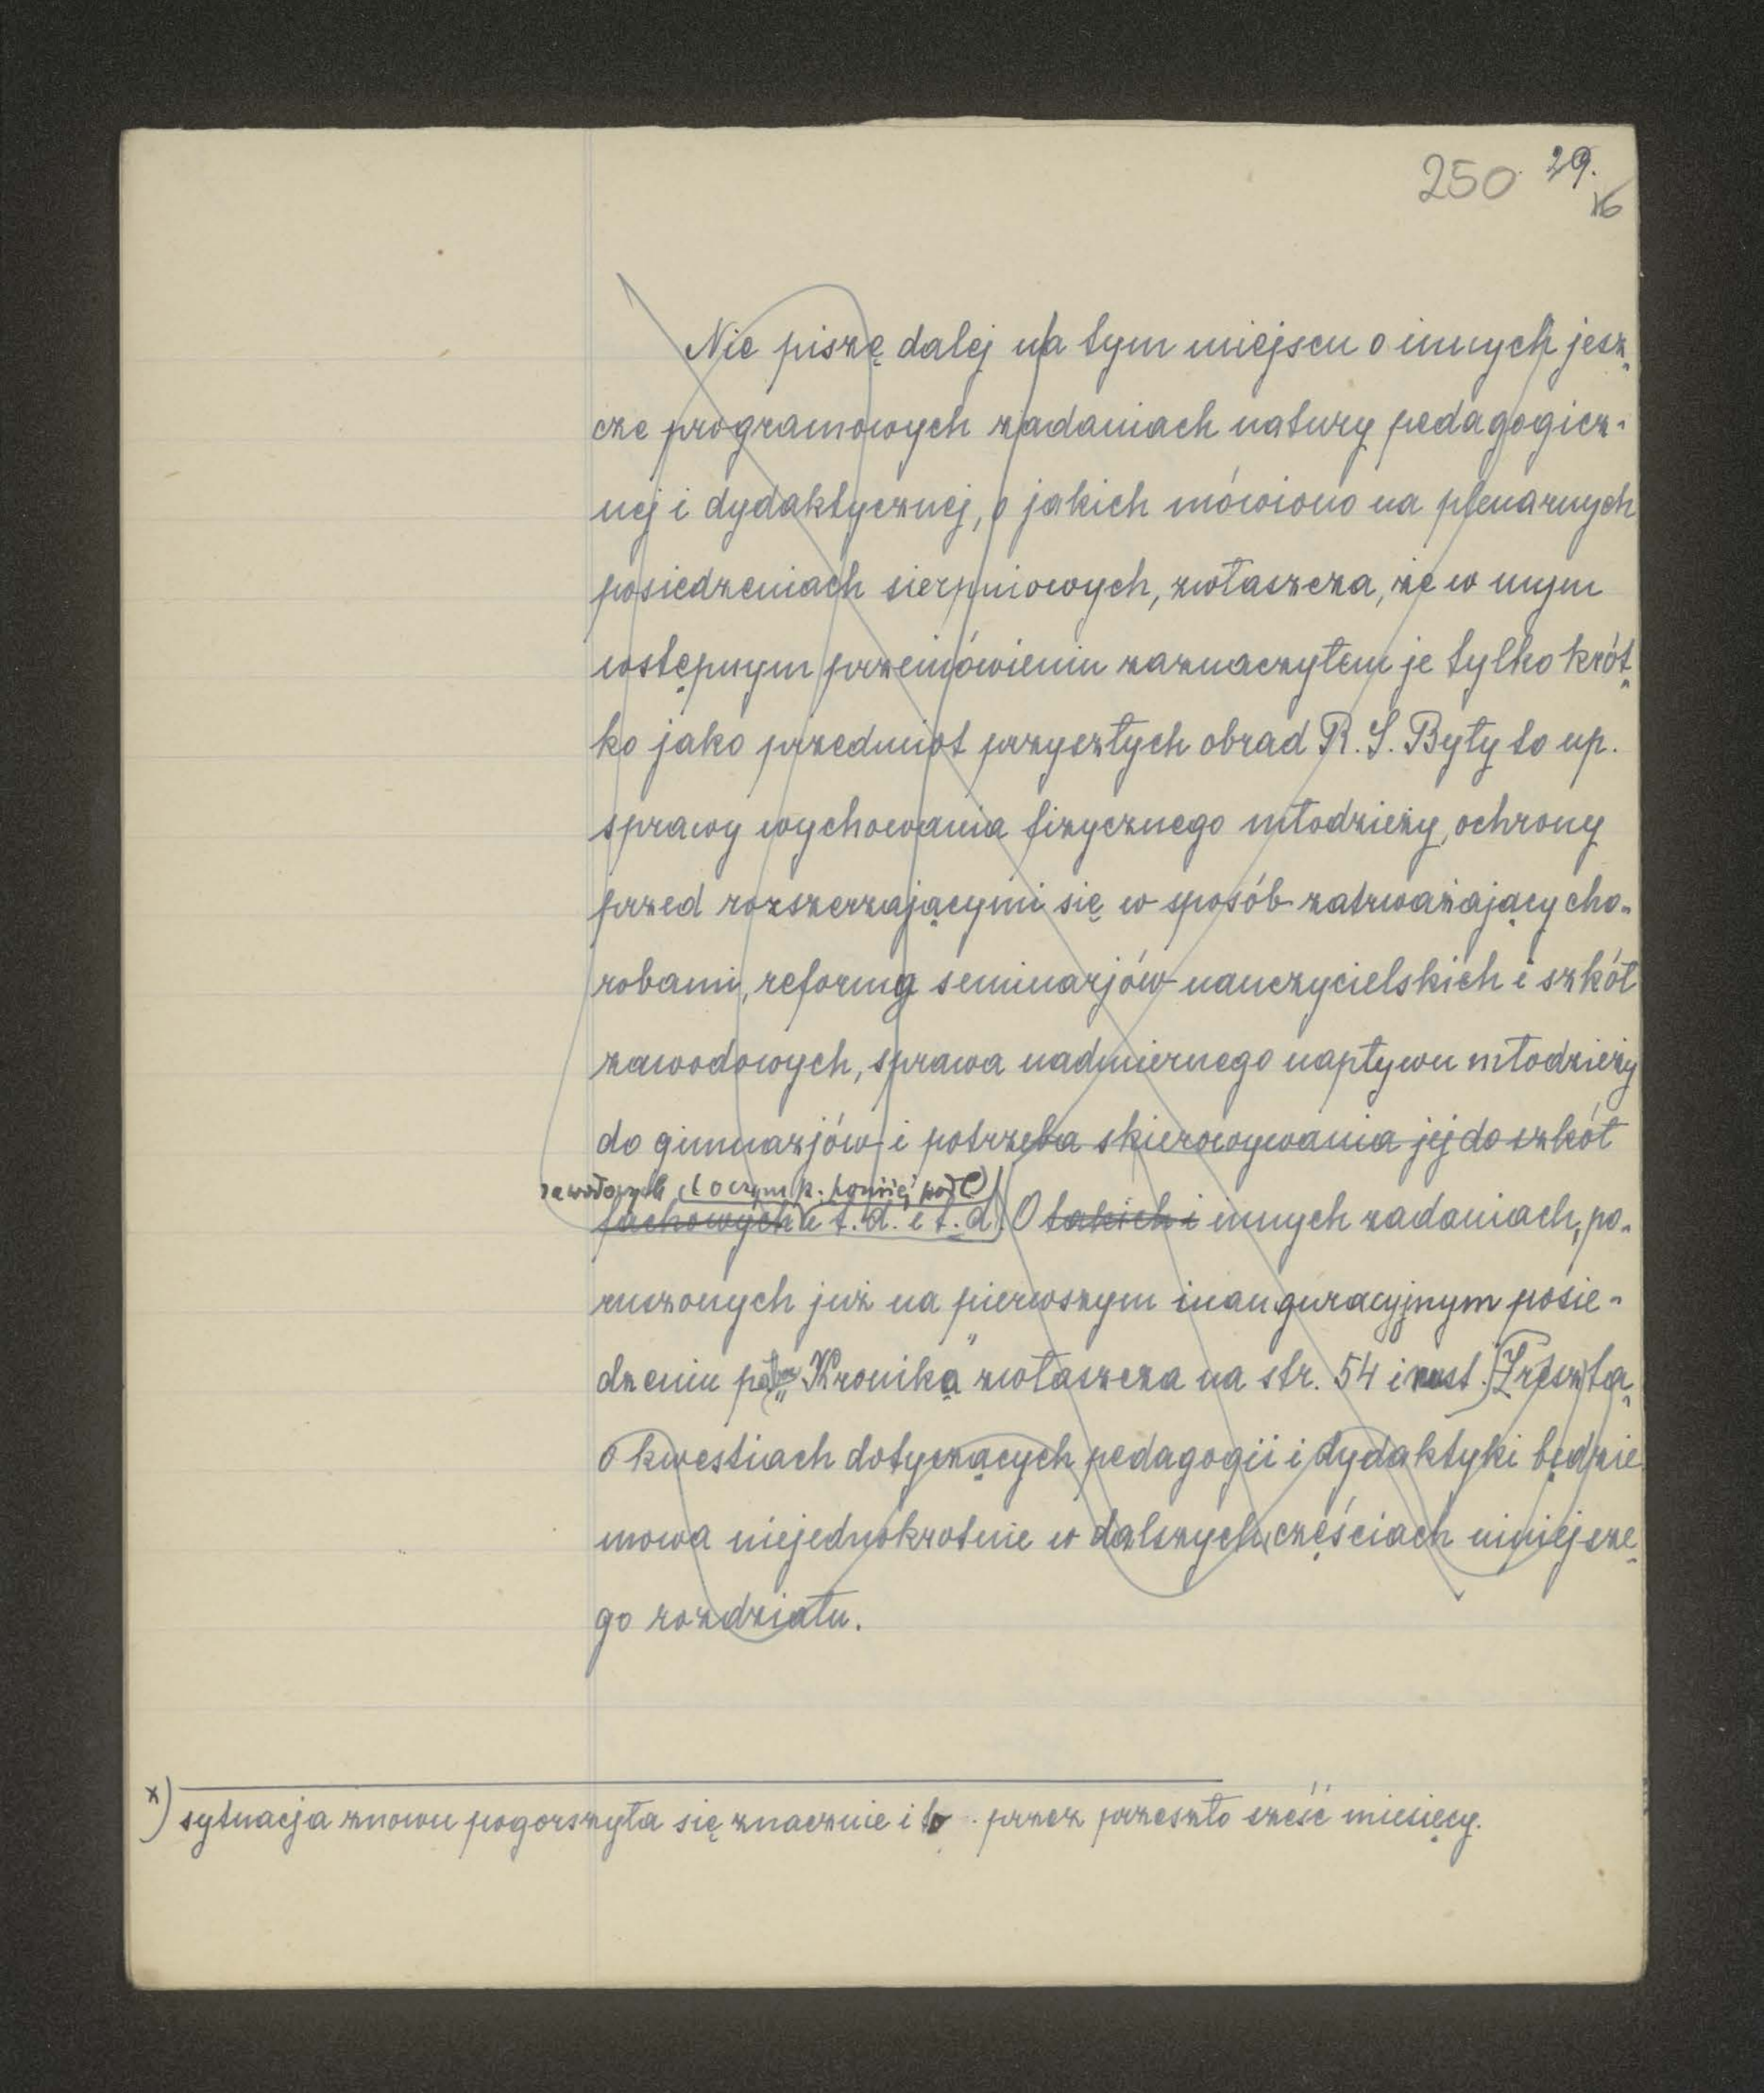 250 29.
16
Nie piszę dalej na tym miejscu o innych jesz-
cze programowych zadaniach natury pedagogicz-
nej i dydaktycznej, o jakich mówiono na plenarnych
posiedzeniach sierpniowych, zwłaszcza, że w mym
wstępnym przemówieniu zaznaczyłem je tylko krót-
ko jako przedmiot przyszłych obrad R. S. Były to np.
sprawy wychowania fizycznego młodzieży, ochrony
przed rozszerzającymi się w sposób zatrważający cho-
robami, reformą seminarjów nauczycielskich i szkół
zawodowych, sprawa nadmiernego napływu młodzieży
do gimnazjów i potrzeba skierowywania jej do szkół
zawodowych (o czym p. poniżej pod C)
fachowych i t. d. i t. d. O takich i innych zadaniach, po-
ruszonych już na pierwszym inauguracyjnym posie-
dzeniu „Kronika" zwłaszcza na str. 54 i nast. Zresztą
o kwestiach dotyczących pedagogii i dydaktyki będzie
mowa niejednokrotnie w dalszych częściach niniejsze-
go rozdziału.
x) sytuacja znowu pogorszyła się znacznie i to przez przeszło sześć miesięcy.